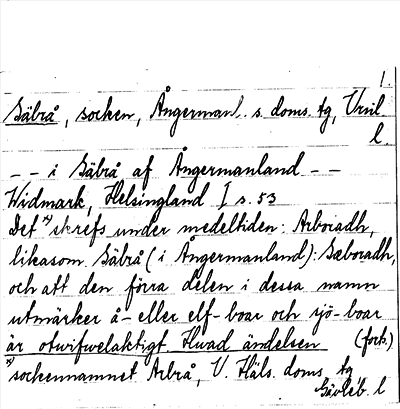 1.
Säbrå, socken, Ångermanl. s. doms. tg, Vnrl.
l.
- - i Säbrå af Ångermanland - -
Widmark, Helsingland I s. 53
Det x) skrefs under medeltiden: Arboradh,
likasom Säbrå (i Ångermanland): Sæboradh,
och att den förra delen i dessa namn
utmärker å- eller elf-boar och sjö-boar
är otwifwelaktigt. Hwad ändelsen (forts.)
x) sockennamnet Arbrå, V. Häls. doms. tg
Gävleb. l